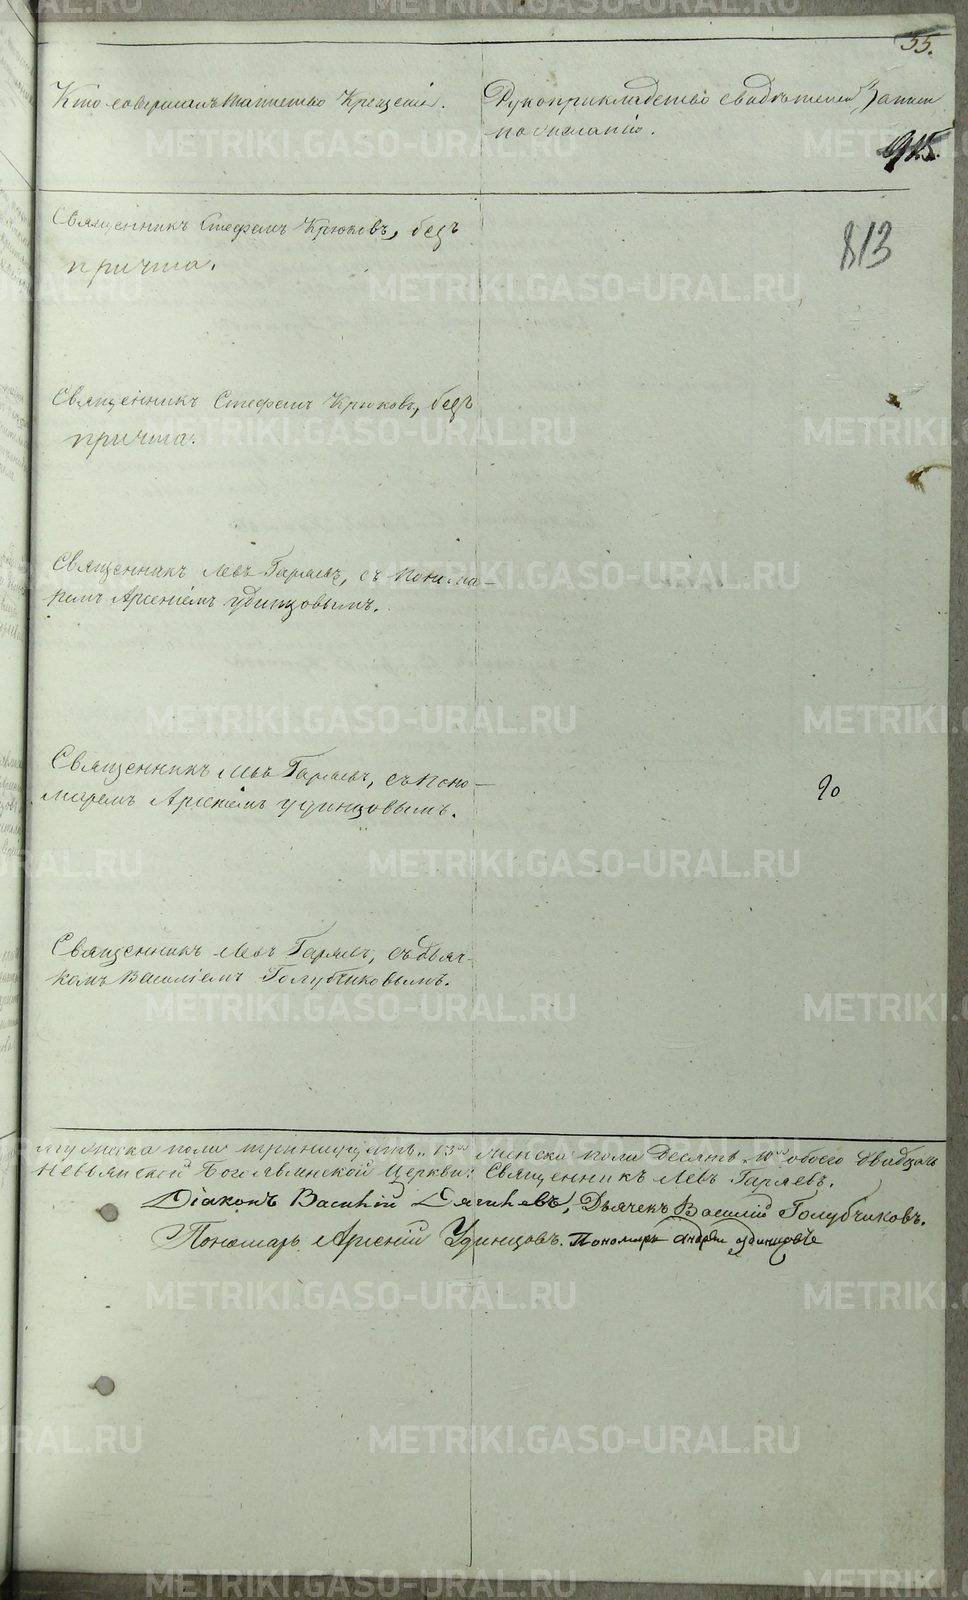 55.
Кто совершалъ таинство Крещенія.
Рукоприкладство свидѣтелей записи
по желанію.
915.
813
Священникъ Стефанъ Крюковъ, безъ
причта.
Священникъ Стефанъ Крюковъ, безъ
причта.
Священникъ Левъ Гаряевъ, съ понома-
ремъ Арсеніемъ Удинцовымъ.
Священникъ Левъ Гаряевъ, съ поно-
маремъ Арсеніемъ Удинцовымъ.
20
Священникъ Левъ Гаряевъ, съ дьяч-
комъ Василіемъ Голубчиковымъ.
мужеска пола тринадцать, 13ть женска пола десять, 10ть обоего двадцать
Невьянской Богоявленской Церкви: Священникъ Левъ Гаряевъ.
Діаконъ Василій Дягилевъ, Дьячекъ Василій Голубчиковъ.
Пономарь Арсеній Удинцовъ. Пономарь Андрей Удинцовъ
METRIKI.GASO-URAL.RU